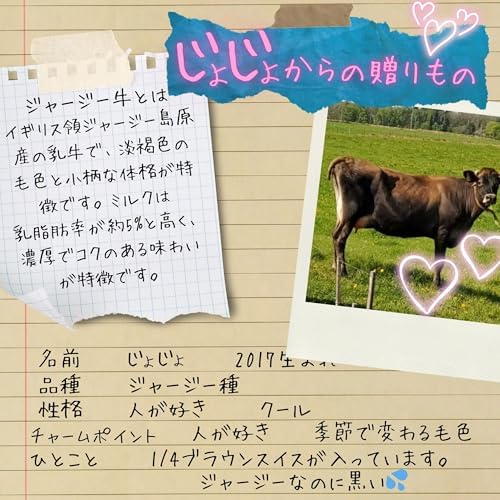 じょじょからの贈りもの
ジャージー牛とは
イギリス領ジャージー島原
産の乳牛で、淡褐色の
毛色と小柄な体格が特
徴です。ミルクは
乳脂肪率が約5%と高く、
濃厚でコクのある味わい
が特徴です。
名前 じょじょ 2017生まれ
品種 ジャージー種
性格 人が好き クール
チャームポイント 人が好き 季節で変わる毛色
ひとこと 1/4ブラウンスイスが入っています。
ジャージーなのに黒い💦